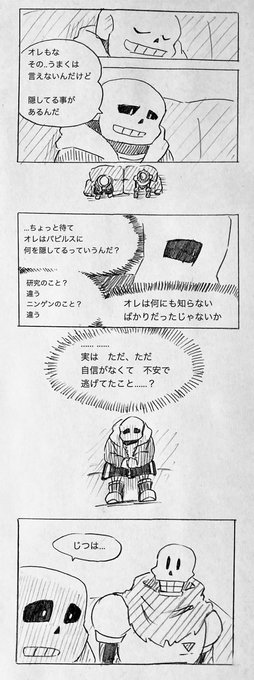 オレもな
その..うまくは
言えないんだけど
隠してる事が
あるんだ
...ちょっと待て
オレはパピルスに
何を隠してるっていうんだ？
研究のこと？
違う
ニンゲンのこと？
違う
オレは何にも知らない
ばかりだったじゃないか
...... ......
実は ただ、ただ
自信がなくて 不安で
逃げてたこと......？
じつは...